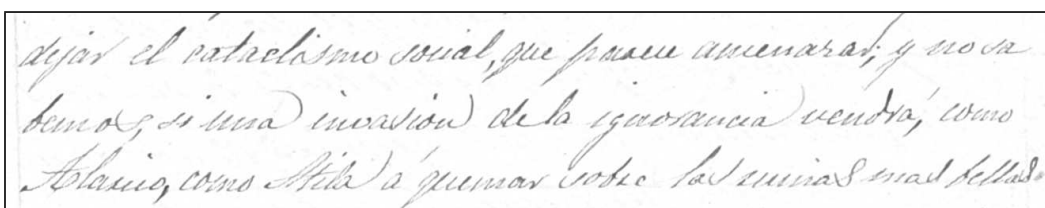 dejar el cataclismo social, que parece amenazar; y no sa
bemos, si una invasion de la ignorancia vendrá, como
Alarico, como Atila á quemar sobre las ruinas mas bellas